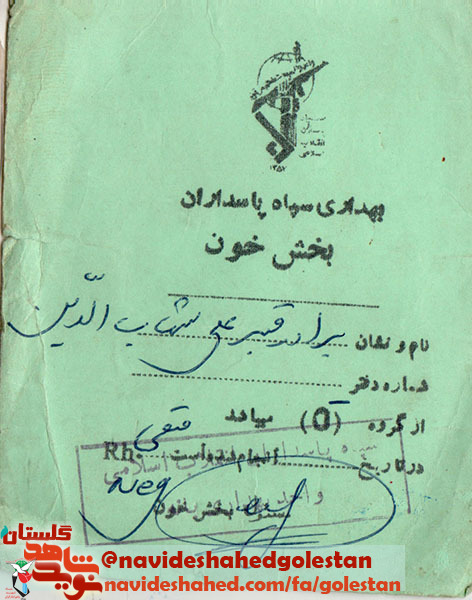 سپاه
پاسداران
انقلاب
اسلامی
۱۳۵۷
بهداری سپاه پاسداران
بخش خون
نام و نشان برادر قنبر علی شهاب الدّین
شماره دفتر
از گروه (O) میباشد منفی
در تاریخ انجام شده است Rh.
Neg
بخش خون
سپاه پاسداران انقلاب اسلامی
گلستان
نوید شاهد
@navideshahedgolestan
navideshahed.com/fa/golestan